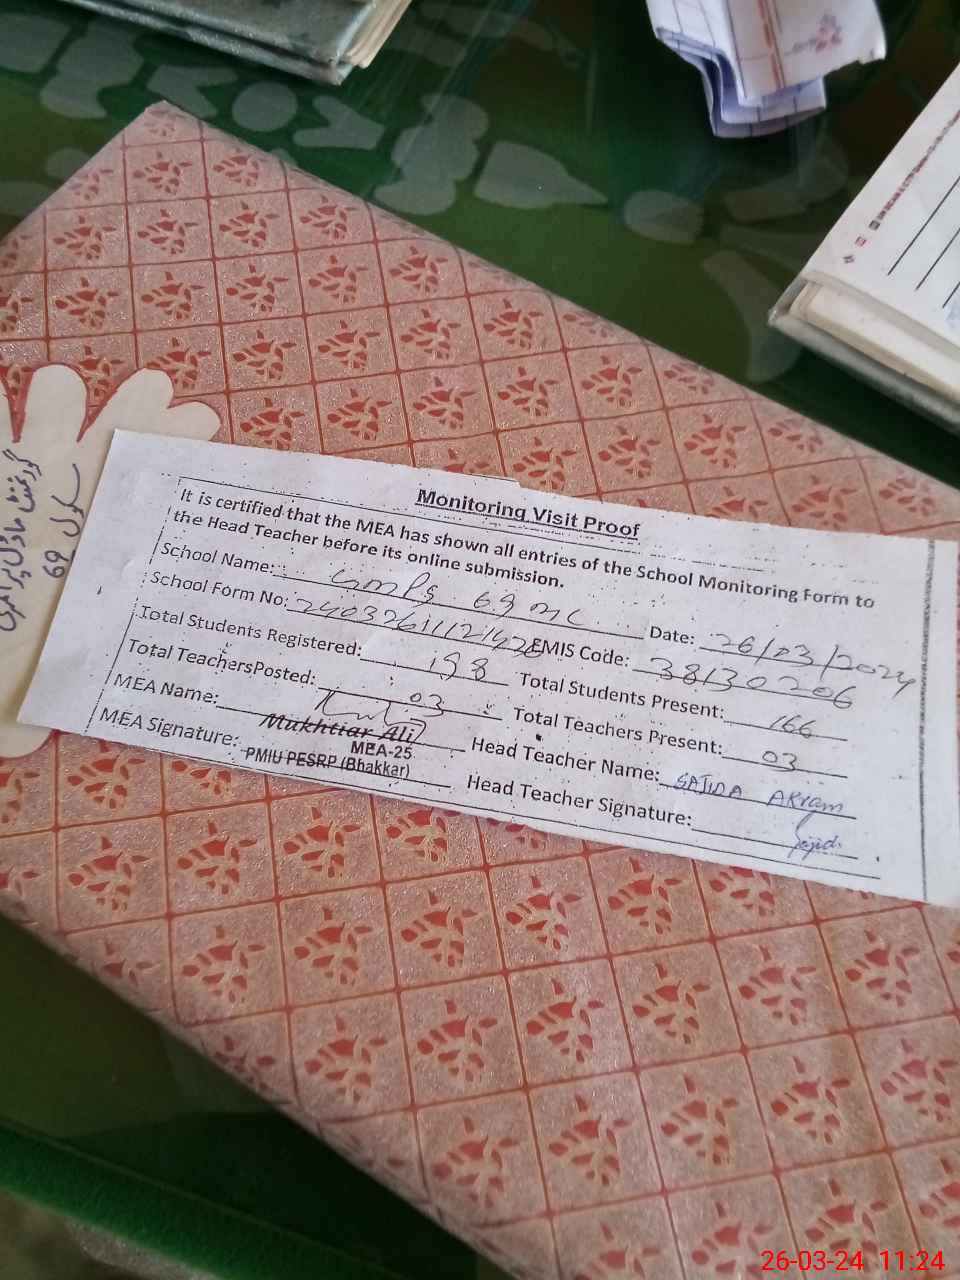 Monitoring Visit Proof
It is certified that the MEA has shown all entries of the School Monitoring Form to
the Head Teacher before its online submission.
School Name: GMPS 69 ML Date: 26/03/2024
School Form No: EMIS Code: 38130206
Total Students Registered: 198 Total Students Present: 166
Total TeachersPosted: 03 Total Teachers Present: 03
MEA Name: Mukhtiar Ali Head Teacher Name: SAJIDA AKram
MEA-25
MEA Signature: PMIU PESRP (Bhakkar) Head Teacher Signature: Sajida
گورنمنٹ ماڈل پرائمری
سکول 69
26-03-24 11:24